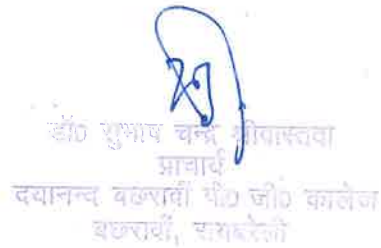 डॉ0 सुभाष चन्द्र श्रीवास्तवा
प्राचार्य
दयानन्द बछरावाँ पी0 जी0 कालेज
बछरावाँ, रायबरेली